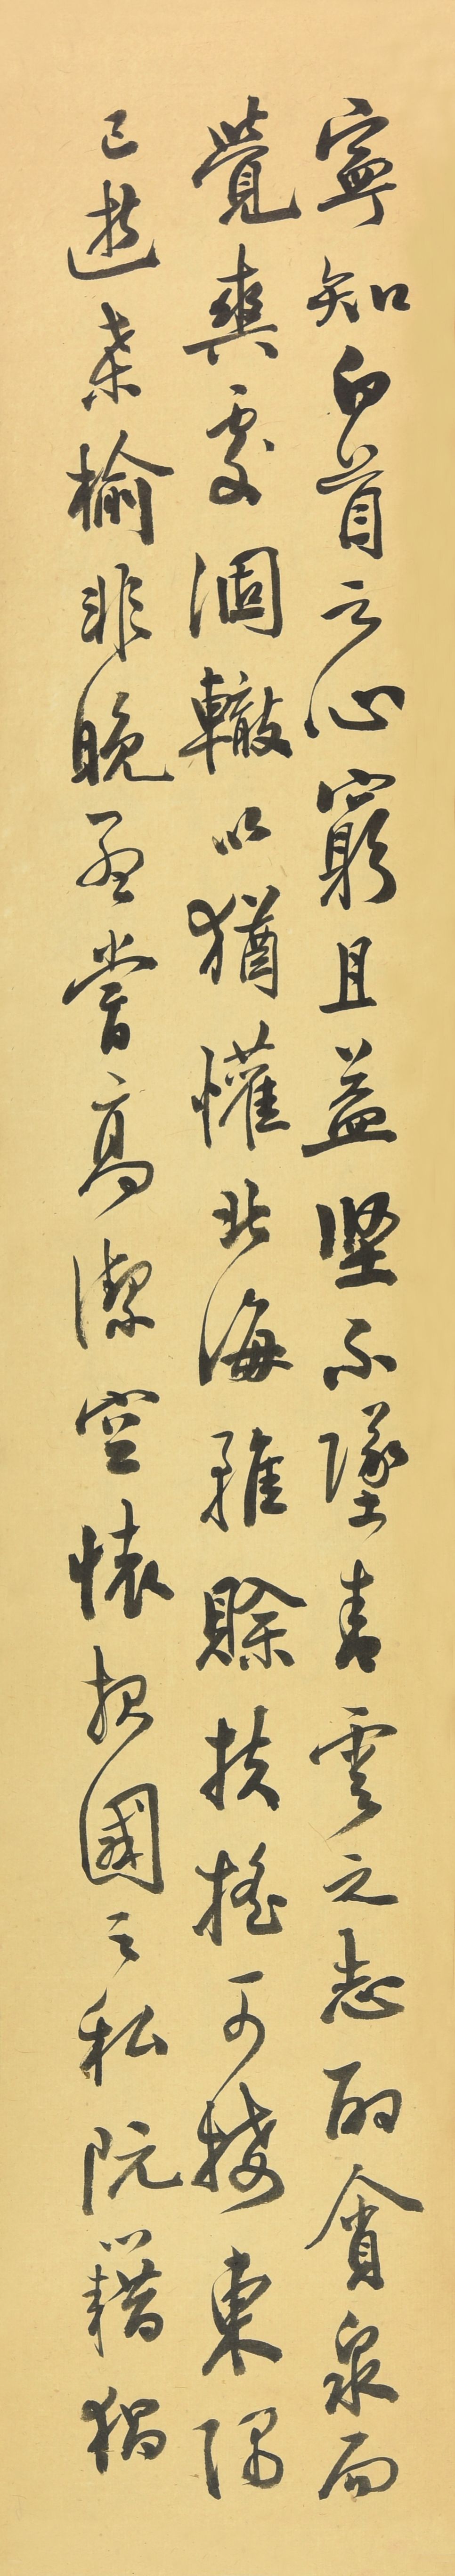 寧知白首之心窮且益堅不墜青雲之志酌貪泉而
覺爽處涸轍以猶懽北海雖賒扶搖可接東隅
已逝桑榆非晚孟嘗高潔空懷報國之私阮籍猖